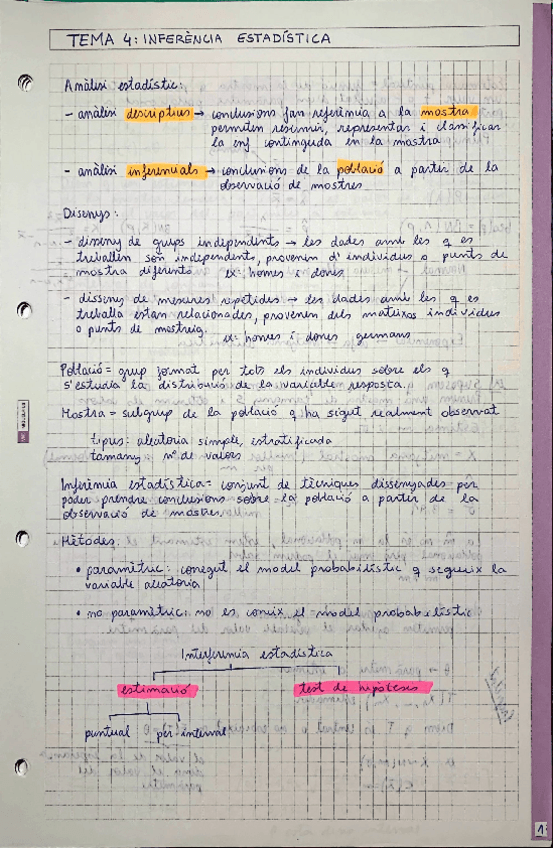 TEMA 4: INFERÈNCIA ESTADÍSTICA
Anàlisi estadístic:
- anàlisi descriptius → conclusions fan referència a la mostra
permeten resumir, representar i classificar
la inf continguda en la mostra
- anàlisi inferencials → conclusions de la població a partir de la
observació de mostres
Disenys:
- disseny de grups independents → les dades amb les q es
treballen són independents, provenen d'individus o punts de
mostra diferents ex: homes i dones
- disseny de mesures repetides → les dades amb les q es
treballa estan relacionades, provenen dels mateixos individus
o punts de mostreig. ex: homes i dones germans
Població = grup format per tots els individus sobre els q
s'estudia la distribució de la variable resposta.
Mostra = subgrup de la població q ha sigut realment observat
tipus: aleatoria simple, estratificada
tamany: nº de valors
Inferència estadística = conjunt de tècniques dissenyades per
poder prendre conclusions sobre la població a partir de la
observació de mostres.
Mètodes:
• paramètric: conegut el model probabilístic q segueix la
variable aleatoria
• no paramètric: no es coneix el model probabilístic
Interferencia estadística
estimació test de hipòtesis
puntual per interval
1